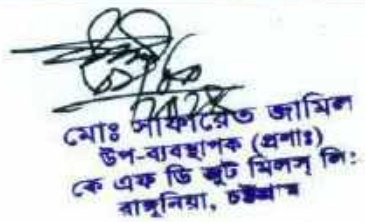 মোঃ সাফায়েত জামিল
উপ-ব্যবস্থাপক (প্রশাঃ)
কে এফ ডি জুট মিলস্ লি:
রাঙ্গুনিয়া, চট্টগ্রাম